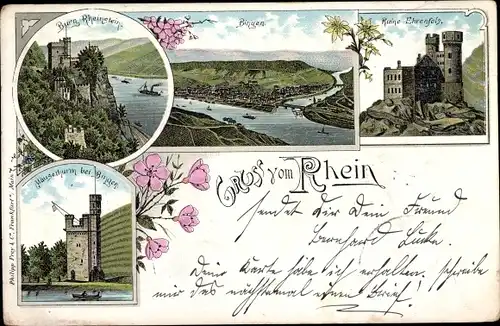 Burg Rheinstein.
Bingen
Ruine Ehrenfels.
Mäusethurm bei Bingen
Philipp Frey & Co. Frankfurt a. Main 7
Gruss vom Rhein
sendet Dir Dein Freund
Bernhard
Deine Karte habe ich erhalten. schreibe
mir das nächstemal einen Brief!